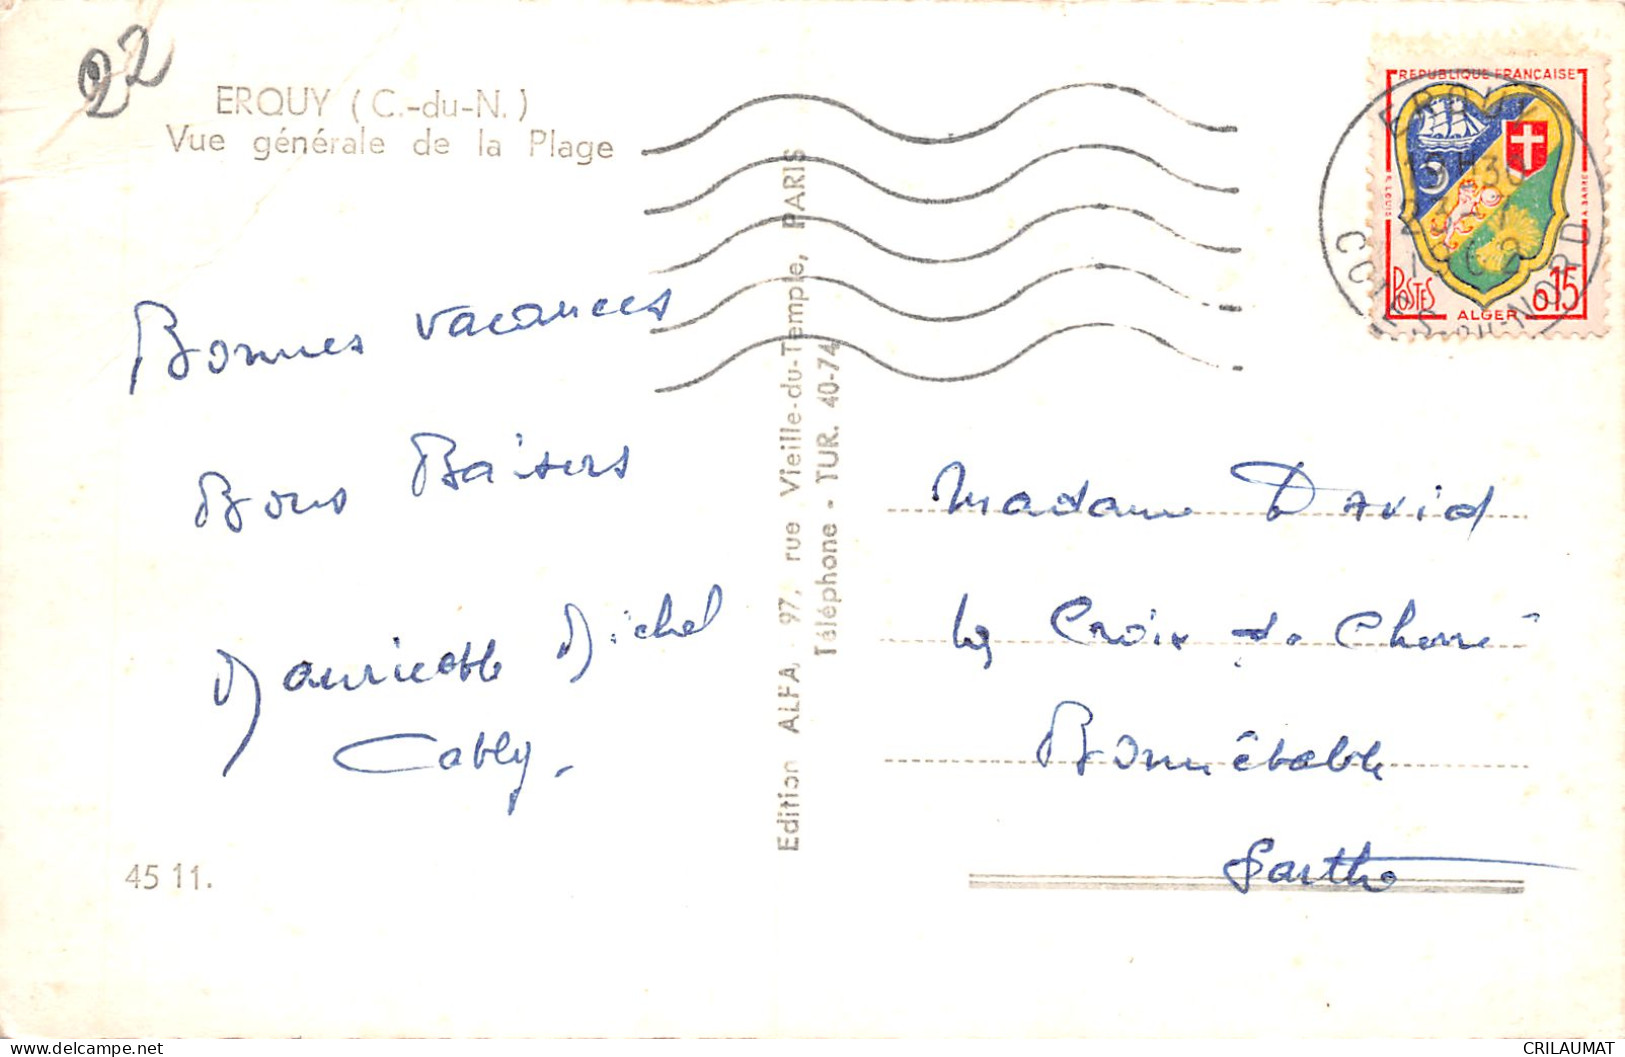 22
ERQUY (C.-du-N.)
Vue générale de la Plage
Bonnes vacances
Bons Baisers
Mauricette Michel
Cathy.
45 11.
Edition ALFA, 97, rue Vieille-du-Temple, PARIS
Téléphone - TUR. 40-74
RÉPUBLIQUE FRANÇAISE
POSTES
ALGER
0,15
ERQUY
19H30
COTES-DU-NORD
Madame David
La Croix de Cherré
Bonnétable
Sarthe
CRILAUMAT